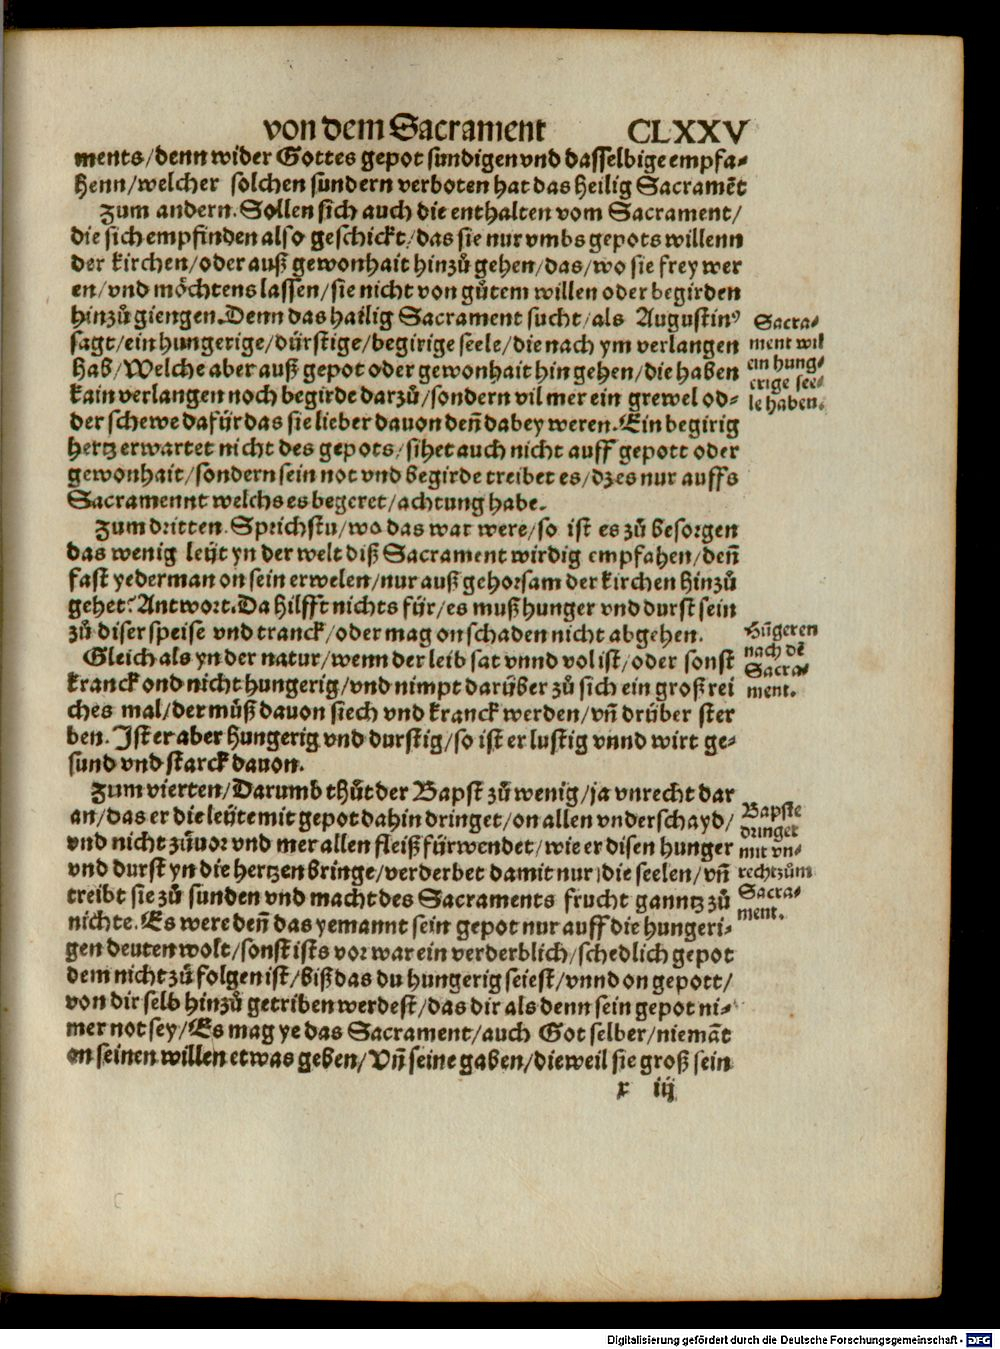 von dem Sacrament CLXXV
ments/denn wider Gottes gepot sundigen vnd dasselbige empfa-
henn/welcher solchen sundern verboten hat das heilig Sacramẽt
Zum andern. Sollen sich auch die enthalten vom Sacrament/
die sich empfinden also geschickt/das sie nur vmbs gepots willenn
der kirchen/oder auß gewonhait hinzů gehen/das/wo sie frey wer
en/vnd möchtens lassen/sie nicht von gůtem willen oder begirden
hinzů giengen. Denn das hailig Sacrament sucht/als Augustinꝰ
sagt/ein hungerige/dürstige/begirige seele/die nach ym verlangen
hab/Welche aber auß gepot oder gewonhait hin gehen/die haben
kain verlangen noch begirde darzů/sondern vil mer ein grewel od-
der schewe dafür das sie lieber dauon deñ dabey weren. Ein begirig
hertz erwartet nicht des gepots/sihet auch nicht auff gepott oder
gewonhait/sondern sein not vnd begirde treibet es/dz es nur auffs
Sacramennt welchs es begeret/achtung habe.
Sacra-
ment wil
ein hung-
erige see-
le haben.
Zum dritten. Sprichstu/wo das war were/so ist es zů besorgen
das wenig leüt yn der welt diß Sacrament wirdig empfahen/deñ
fast yederman on sein erwelen/nur auß gehorsam der kirchen hinzů
gehet? Antwort. Da hilfft nichts für/es muß hunger vnd durst sein
zů diser speise vnd tranck/oder mag on schaden nicht abgehen.
Gleich als yn der natur/wenn der leib sat vnnd vol ist/oder sonst
kranck ond nicht hungerig/vnd nimpt darüber zů sich ein groß rei
ches mal/der můß dauon siech vnd kranck werden/vñ drüber ster
ben. Ist er aber hungerig vnd durstig/so ist er lustig vnnd wirt ge-
sund vnd starck dauon.
Hũgeren
nach dẽ
Sacra-
ment.
Zum vierten/Darumb thůt der Bapst zů wenig/ja vnrecht dar
an/das er die leüte mit gepot dahin dringet/on allen vnderschayd/
vnd nicht zůuor vnd mer allen fleiß fürwendet/wie er disen hunger
vnd durst yn die hertzen bringe/verderbet damit nur die seelen/vñ
treibt sie zů sunden vnd macht des Sacraments frucht ganntz zů
nichte. Es were deñ das yemannt sein gepot nur auff die hungeri-
gen deuten wolt/sonst ists vorwar ein verderblich/schedlich gepot
dem nicht zů folgen ist/biß das du hungerig seiest/vnnd on gepott/
von dir selb hinzů getriben werdest/das dir als denn sein gepot ni-
mer not sey/Es mag ye das Sacrament/auch Got selber/niemãt
on seinen willen etwas geben/Vñ seine gaben/dieweil sie groß sein
Bapste
dringet
mit vn-
recht zům
Sacra-
ment.
x iij
Digitalisierung gefördert durch die Deutsche Forschungsgemeinschaft - DFG